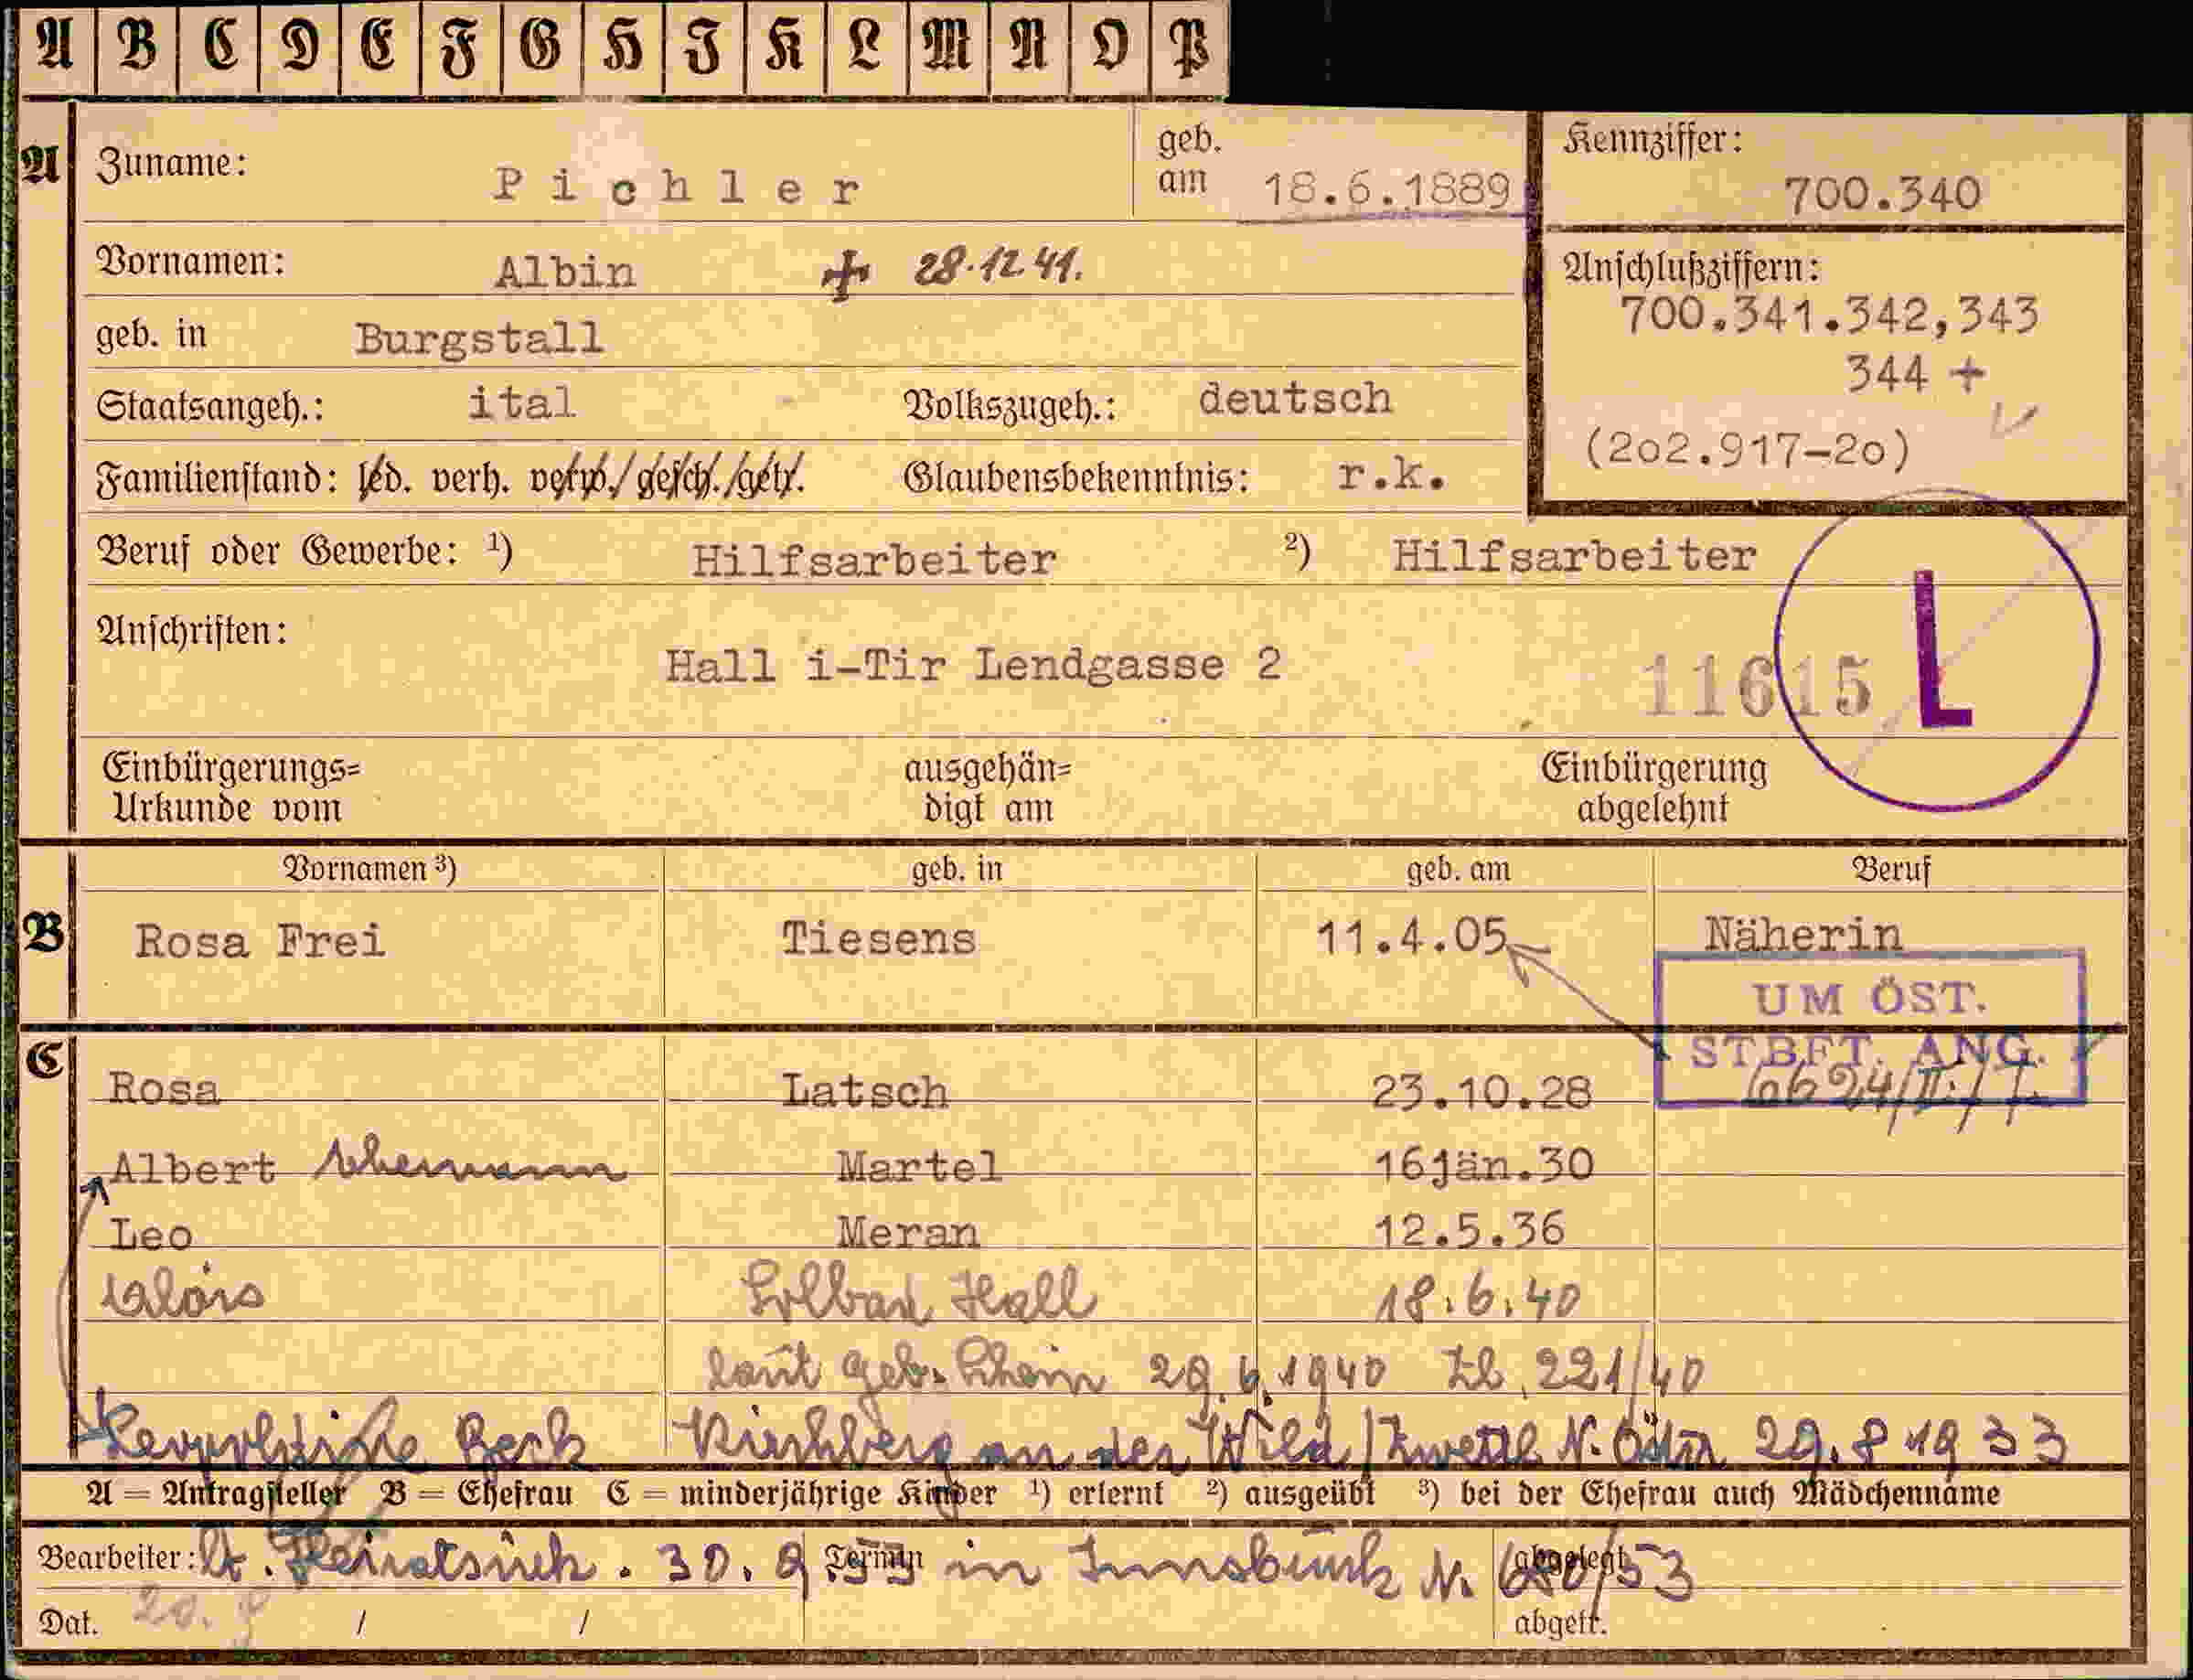 A B C D E F G H I K L M N O P
A Zuname: Pichler geb. am 18.6.1889 Kennziffer: 700.340
Vornamen: Albin + 28.12.41. Anschlußziffern:
700.341.342,343
344 +
geb. in Burgstall
Staatsangeh.: ital Volkszugeh.: deutsch
(2o2.917-2o)
Familienstand: led. verh. verw./gesch./getr. Glaubensbekenntnis: r.k.
Beruf oder Gewerbe: 1) Hilfsarbeiter 2) Hilfsarbeiter
Anschriften: Hall i-Tir Lendgasse 2
11615 L
Einbürgerungs= ausgehän= Einbürgerung
Urkunde vom digt am abgelehnt
Vornamen 3) geb. in geb. am Beruf
B Rosa Frei Tiesens 11.4.05 Näherin
UM ÖST.
STBFT. ANG.
C Rosa Latsch 23.10.28
Albert Ehemann Martel 16jän.30
Leo Meran 12.5.36
Alois Solbad Hall 18.6.40
laut Geb. Schein 29.6.1940 Zl. 221/40
Leopoldine Beck Kirchberg an der Wild / Zwettl N. Östr 29.8 1933
A = Antragsteller B = Ehefrau C = minderjährige Kinder 1) erlernt 2) ausgeübt 3) bei der Ehefrau auch Mädchenname
Bearbeiter: lt. Heiratsurk. 30.9 Termin in Innsbruck N. /53 abgelegt
Dat. 20. / / abgetr.